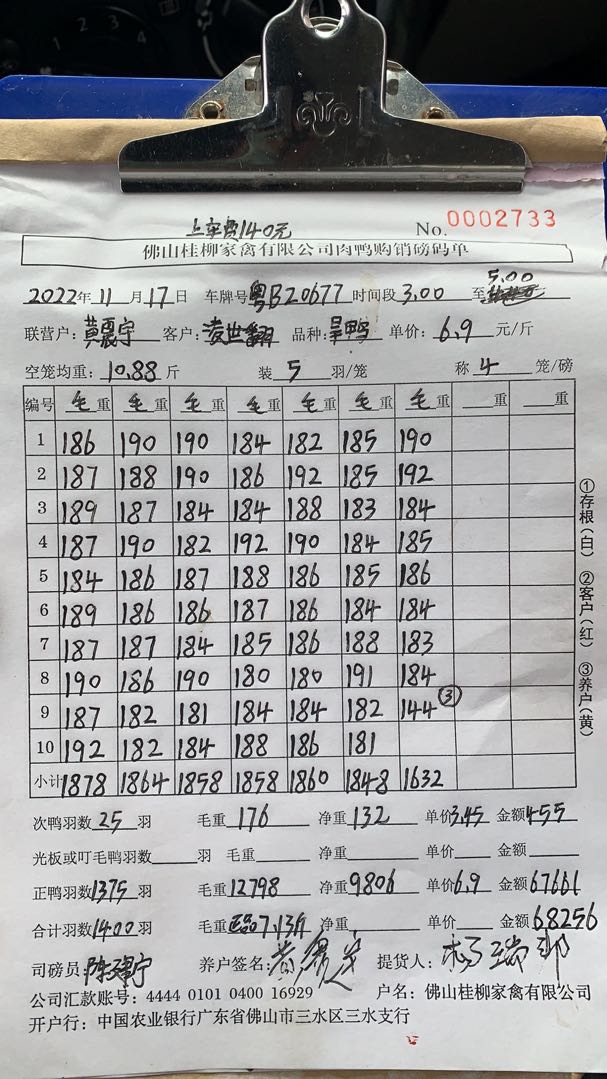 上车费140元
No. 0002733
佛山桂柳家禽有限公司肉鸭购销磅码单
2022年11月17日 车牌号粤B20677 时间段3.00至5.00
联营户:黄震宇 客户:凌世翻 品种:旱鸭 单价:6.9元/斤
空笼均重:10.88斤 装5羽/笼 称4笼/磅
编号 毛重 毛重 毛重 毛重 毛重 毛重 毛重 重 重
1 186 190 190 184 182 185 190
2 187 188 190 186 192 185 192
3 189 187 184 184 188 183 184
4 187 190 182 192 190 184 185
5 184 186 187 188 186 185 186
6 189 186 186 187 186 184 184
7 187 187 184 185 186 188 183
8 190 186 190 180 180 191 184
9 187 182 181 184 184 182 144③
10 192 182 184 188 186 181
小计 1878 1864 1858 1858 1860 1848 1632
次鸭羽数25羽 毛重176 净重132 单价3.45 金额455
光板或叮毛鸭羽数 羽 毛重 净重 单价 金额
正鸭羽数1375羽 毛重12798 净重9806 单价6.9 金额67661
合计羽数1400羽 毛重 7.13斤 净重 单价 金额68256
司磅员: 养户签名: 提货人:
公司汇款账号:4444 0101 0400 16929 户名:佛山桂柳家禽有限公司
开户行:中国农业银行广东省佛山市三水区三水支行
①存根(白) ②客户(红) ③养户(黄)